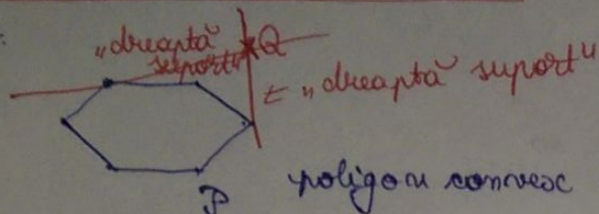 „dreaptă
suport"
Q
← „dreaptă suport"
P
poligon convex